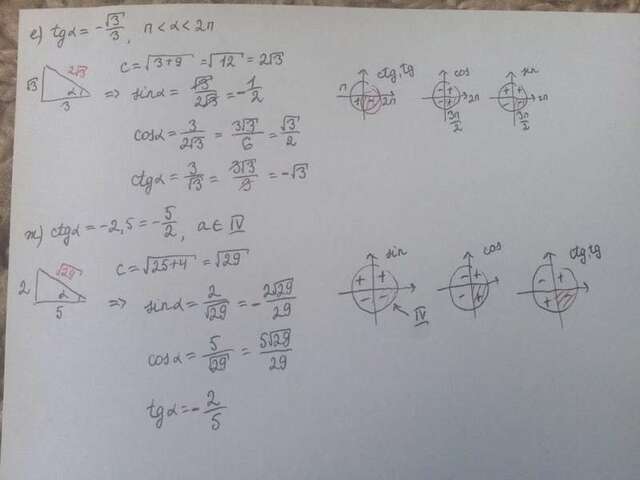 e) tgα = -√3/3, π < α < 2π
c = √(3+9) = √12 = 2√3
√3 2√3 α 3
=> sinα = √3/2√3 = -1/2
cosα = 3/2√3 = 3√3/6 = √3/2
ctgα = 3/√3 = 3√3/3 = -√3
ctg, tg π + - 2π
cos - + - + 2π 3π/2
sin + + - - 2π 3π/2
ж) ctgα = -2,5 = -5/2, α ∈ IV
c = √(25+4) = √29
2 √29 α 5
=> sinα = 2/√29 = -2√29/29
cosα = 5/√29 = 5√29/29
tgα = -2/5
sin + + - - IV
cos - + - +
ctg, tg - + + -